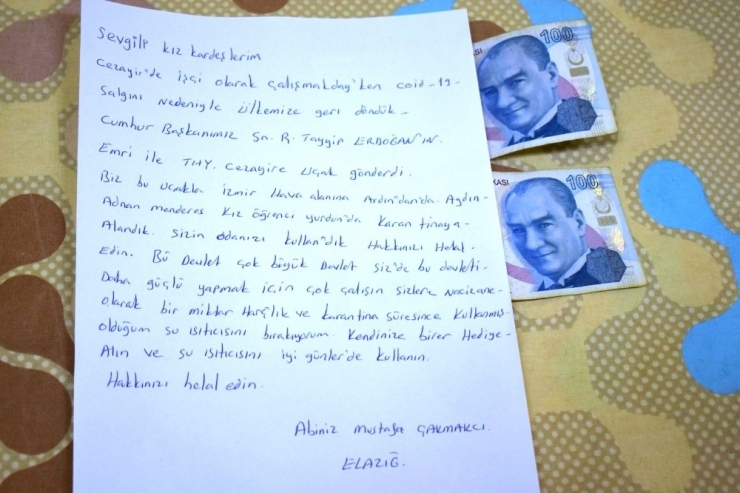 Sevgili kız kardeşlerim
Cezayir'de işçi olarak çalışmakday'ken coid-19-
Salgını nedeniyle ülkemize geri döndük-
Cumhur Başkanımız Sn. R. Tayyip ERDOĞAN'IN.
Emri ile THY. Cezayire Uçak gönderdi.
Biz bu uçakla izmir Hava alanına Ardın'dan'da Aydın-
Adnan menderes kız öğrenci yurdun'da karan tinaya-
Alandık. Sizin odanızı kullan'dık Hakkınızı Helal-
Edin. Bü Devlet çok büyük Devlet siz'de bu devleti-
Daha güçlü yapmak için çok çalışın sizlere Nacizane-
olarak bir miktar Harçlık ve karantina süresince kullanmış-
olduğum su ısıtıcısını bırakıyorum. Kendinize birer Hediye-
Alın ve su ısıtıcısını iyi günler'de kullanın.
Hakkınızı helal edin.
Abiniz Mustafa ÇAKMAKCI.
ELAZIĞ.
100
KASI 100